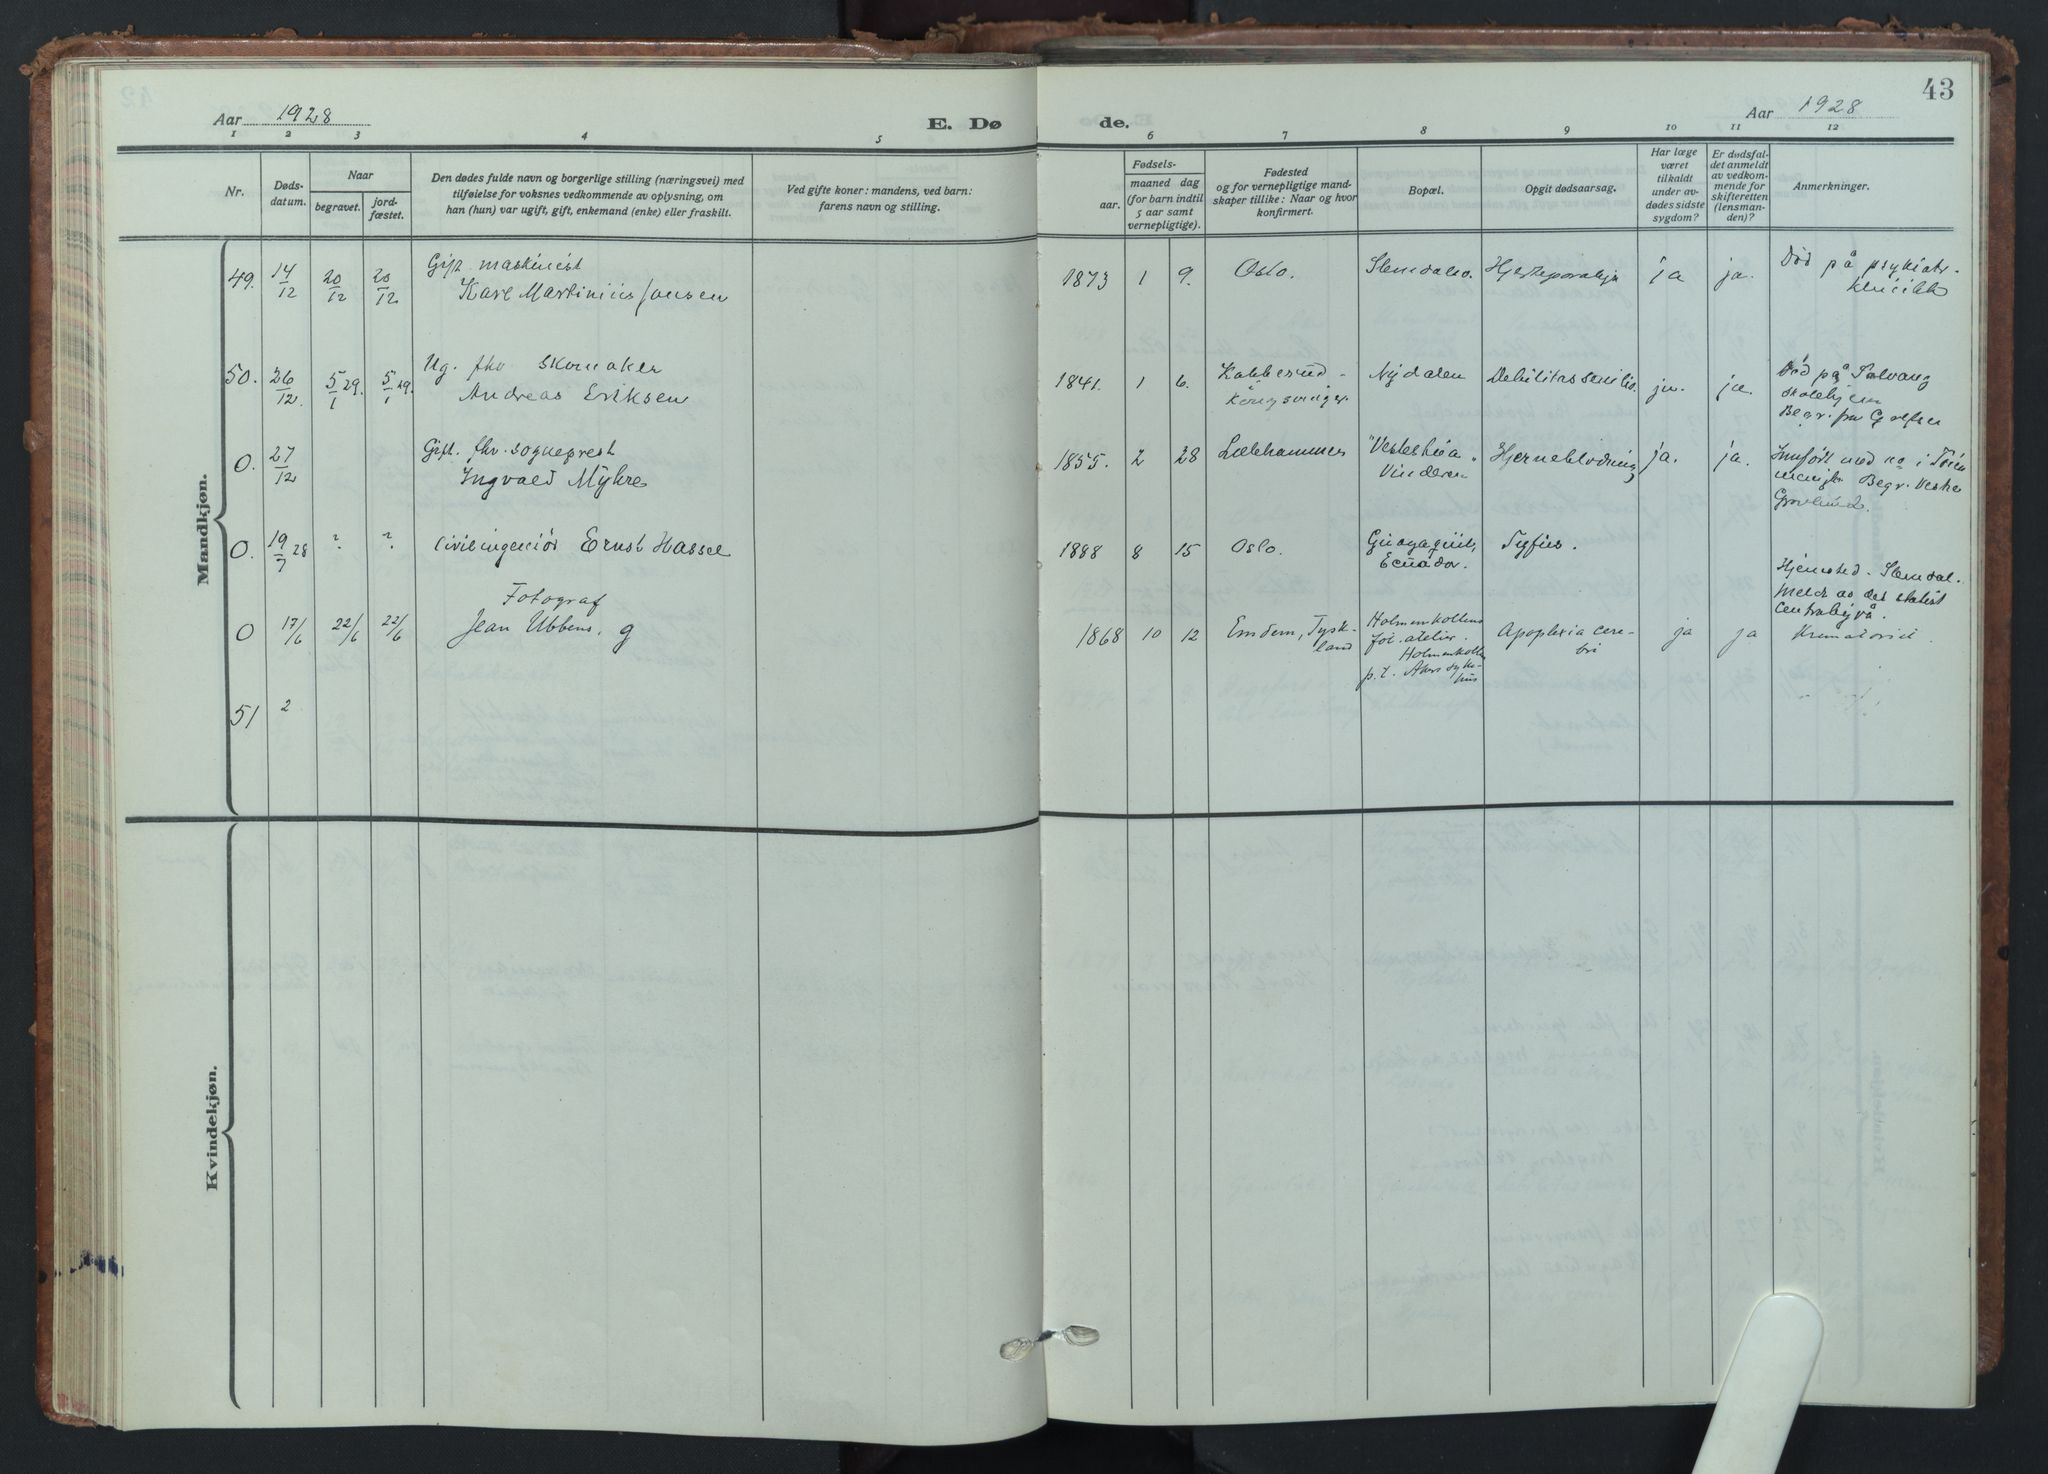 43
Aar 1928
E. Døde.
Aar 1928
1 2 3 4 5 6 7 8 9 10 11 12
Nr.
Døds-
datum.
Naar
begravet.
jord-
fæstet.
Den dødes fulde navn og borgerlige stilling (næringsvei) med
tilføielse for voksnes vedkommende av oplysning, om
han (hun) var ugift, gift, enkemand (enke) eller fraskilt.
Ved gifte koner: mandens, ved barn:
farens navn og stilling.
Fødsels-
aar.
maaned dag
(for barn indtil
5 aar samt
vernepligtige).
Fødested
og for vernepligtige mand-
skaper tillike: Naar og hvor
konfirmert.
Bopæl.
Opgit dødsaarsag.
Har læge
været
tilkaldt
under av-
dødes sidste
sygdom?
Er dødsfal-
det anmeldt
av vedkom-
mende for
skifteretten
(lensman-
den)?
Anmerkninger.
Mandkjøn.
49. 14/12 20/12 20/12
Gift. maskinist
Karl Martinius Jansen
1873 1 9. Oslo. Slemdalsv. Hjerteparalyse ja ja.
Død på psykiatr.
klinikk
50. 26/12. 5/1 29. 5/1 29.
Ug. fhv skomaker
Andreas Eriksen
1841. 1 6.
Kongsvinger.
Nydalen Debilitas senilis. ja. ja.
Død på Solvang
Begr. fra Grefsen
0. 27/12
Gift. fhv. sogneprest
Ingvald Myhre
1855. 2 28 Lillehammer
Vinderen
Hjerneblødning ja. ja.
Innført med no i
menigh. Begr. Vestre
Gravlund.
0. 19/7 28 ? ?
Civilingeniør Ernst Hassel
1888 8 15 Oslo.
Guayaquil,
Ecuador.
Tyfus.
Hjemsted. Slemdal.
Meldt av det statist
centralbyrå.
0 17/6 22/6 22/6
Fotograf
Jean Ubbens, g
1868 10 12
Emdem, Tysk-
land
Holmenkollens
fot. atelier.
Holmenkollen
p.t. Akers syke-
hus
Apoplexia cere-
bri
ja ja
Krematoriet.
51 2
Kvindekjøn.